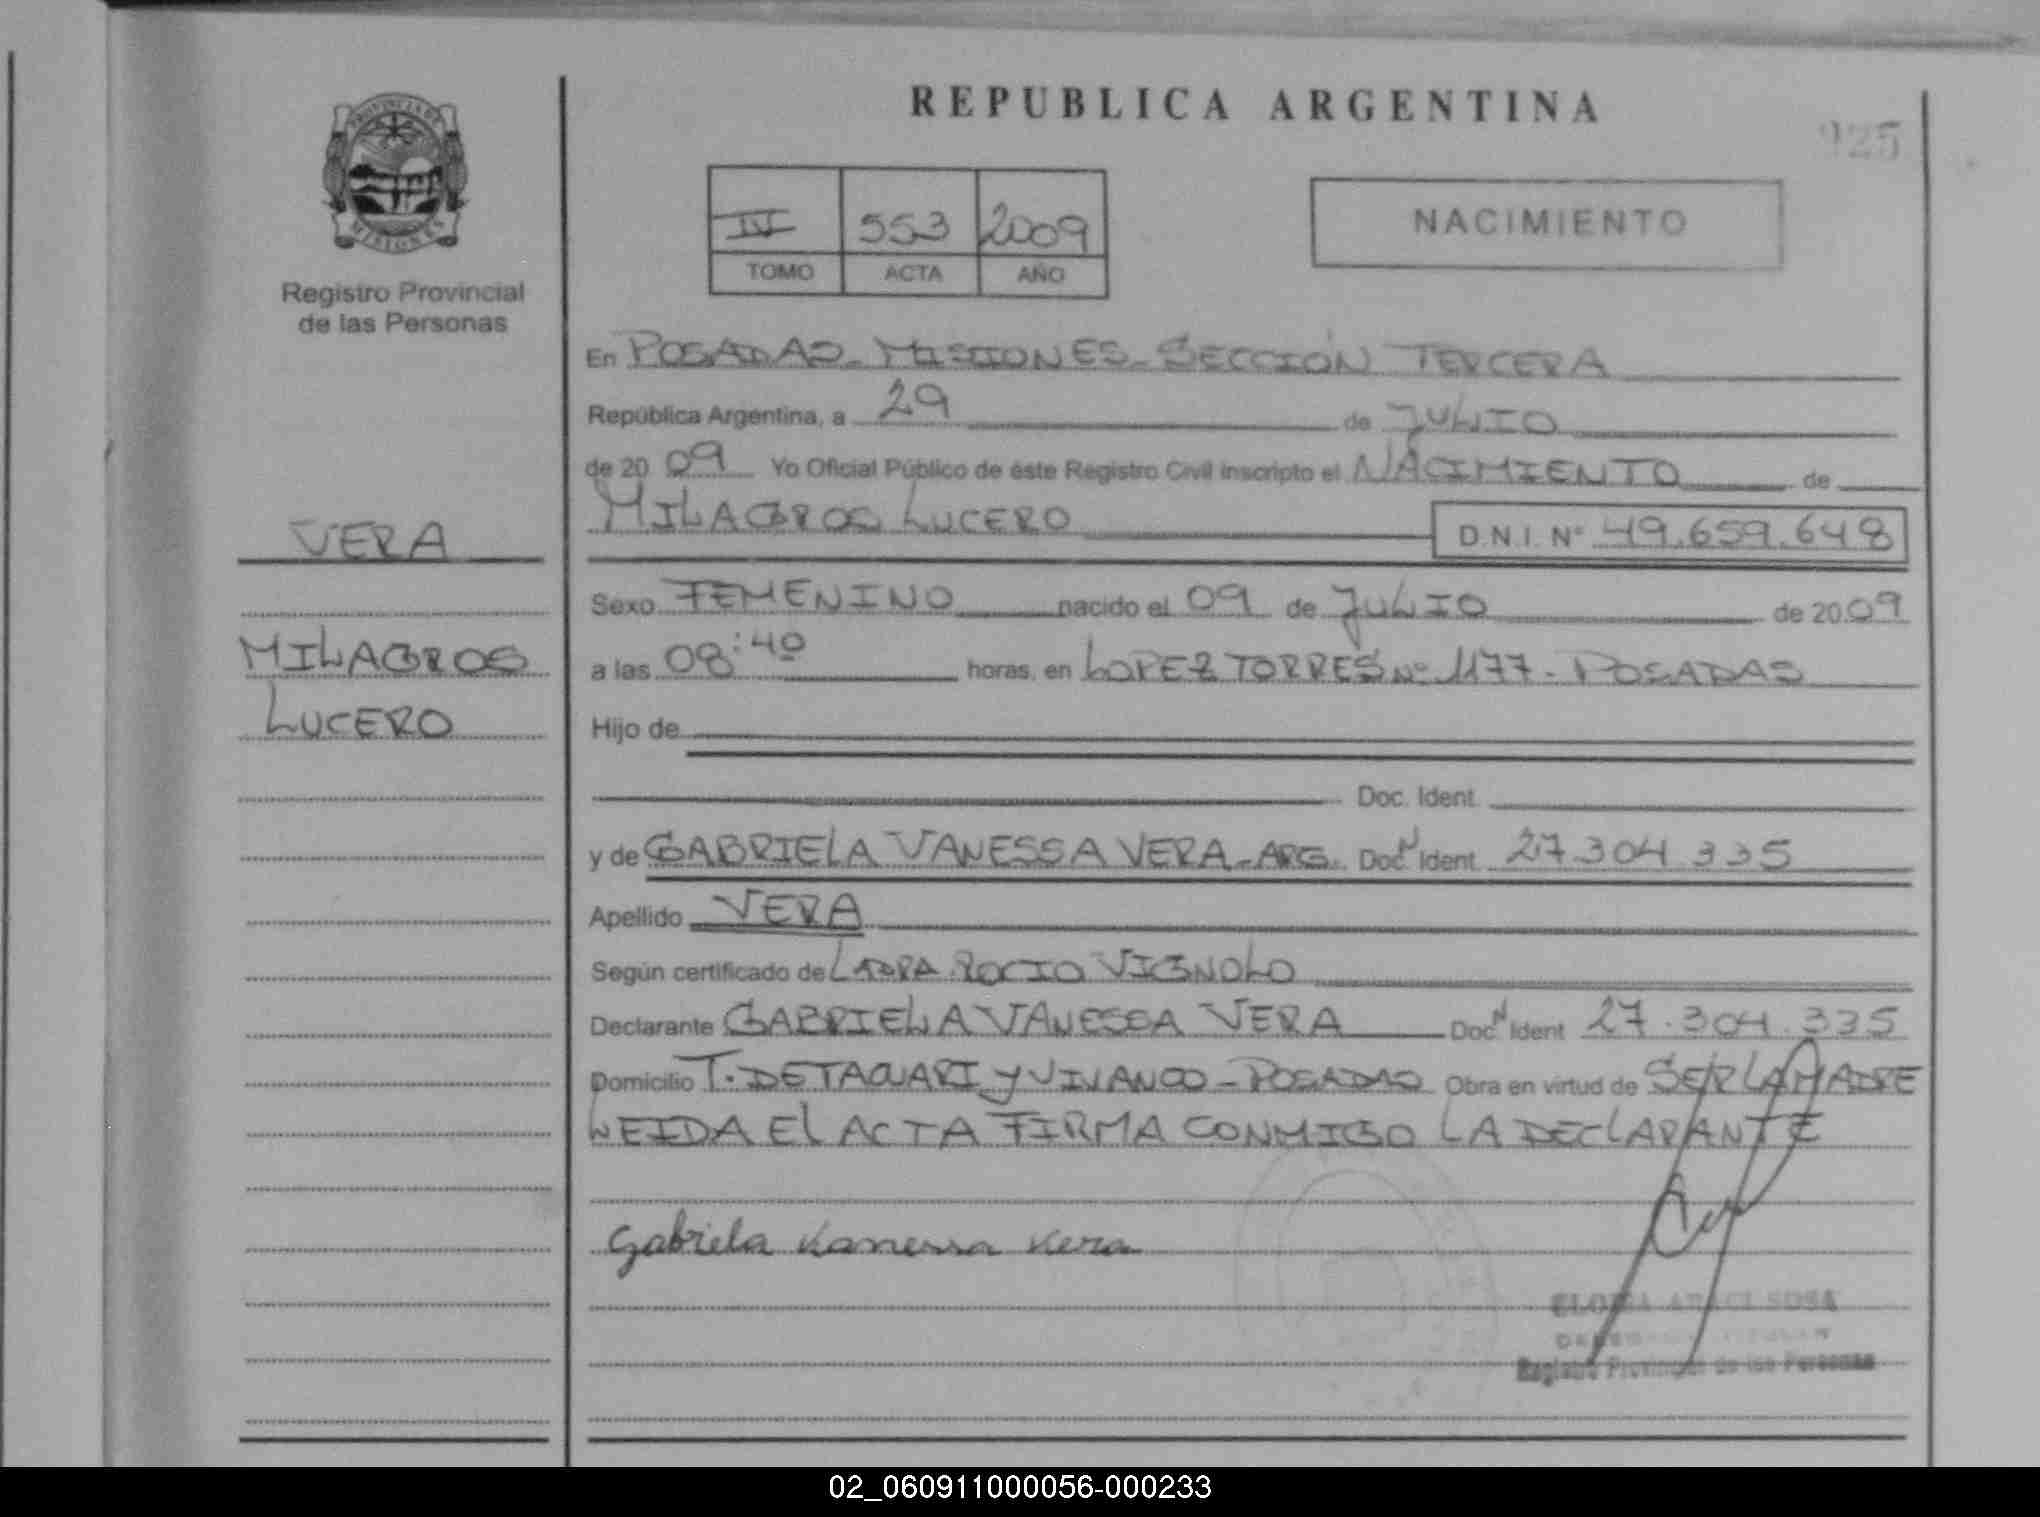 REPUBLICA ARGENTINA
925
PROVINCIA DE
MISIONES
Registro Provincial
de las Personas
IV 553 2009
TOMO ACTA AÑO
NACIMIENTO
En POSADAS-MISIONES-SECCIÓN TERCERA
República Argentina, a 29 de JULIO
de 20 09 Yo Oficial Público de éste Registro Civil inscripto el NACIMIENTO de
MILAGROS LUCERO D.N.I. Nº 49.659.648
VERA
MILAGROS
LUCERO
Sexo FEMENINO nacido el 09 de JULIO de 20 09
a las 08:40 horas, en LOPEZ TORRES Nº 1177-POSADAS
Hijo de
Doc. Ident.
y de GABRIELA VANESSA VERA-ARG. Doc. N Ident. 27.304.335
Apellido VERA
Según certificado de LAURA ROCIO VIGNOLO
Declarante GABRIELA VANESSA VERA Doc. N Ident 27.304.335
Domicilio T. DETAQUARI y VIVANCO-POSADAS Obra en virtud de SER LA MADRE
LEIDA El ACTA FIRMA CONMIGO LA DECLARANTE
Gabriela Vanessa Vera
SOSA
Registro Provincial de las Personas
02_060911000056-000233